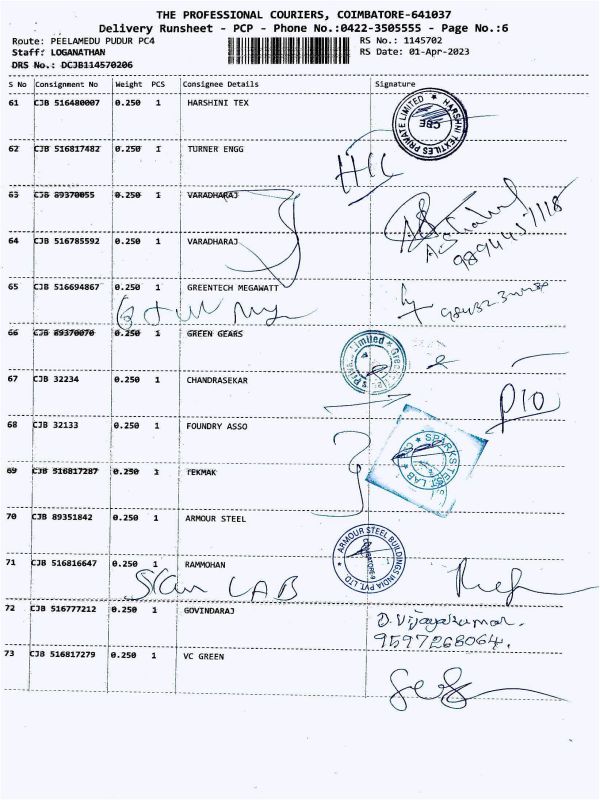 THE PROFESSIONAL COURIERS, COIMBATORE-641037
Delivery Runsheet - PCP - Phone No.:0422-3505555 - Page No.:6
Route: PEELAMEDU PUDUR PC4 RS No.: 1145702
Staff: LOGANATHAN RS Date: 01-Apr-2023
DRS No.: DCJB114570206
S No Consignment No Weight PCS Consignee Details Signature
61 CJB 516480007 0.250 1 HARSHINI TEX
HARSHINI TEXTILES PRIVATE LIMITED * CBE
62 CJB 516817482 0.250 1 TURNER ENGG
63 CJB 89370055 0.250 1 VARADHARAJ
64 CJB 516785592 0.250 1 VARADHARAJ
65 CJB 516694867 0.250 1 GREENTECH MEGAWATT
66 CJB 89370070 0.250 1 GREEN GEARS
67 CJB 32234 0.250 1 CHANDRASEKAR
68 CJB 32133 0.250 1 FOUNDRY ASSO
SPARKS TEST LAB
69 CJB 516817287 0.250 1 TEKMAK
70 CJB 89351842 0.250 1 ARMOUR STEEL
ARMOUR STEEL BUILDINGS INDIA PVT. LTD
71 CJB 516816647 0.250 1 RAMMOHAN
LAB
72 CJB 516777212 0.250 1 GOVINDARAJ
D. Vijayakumar.
9597268064.
73 CJB 516817279 0.250 1 VC GREEN